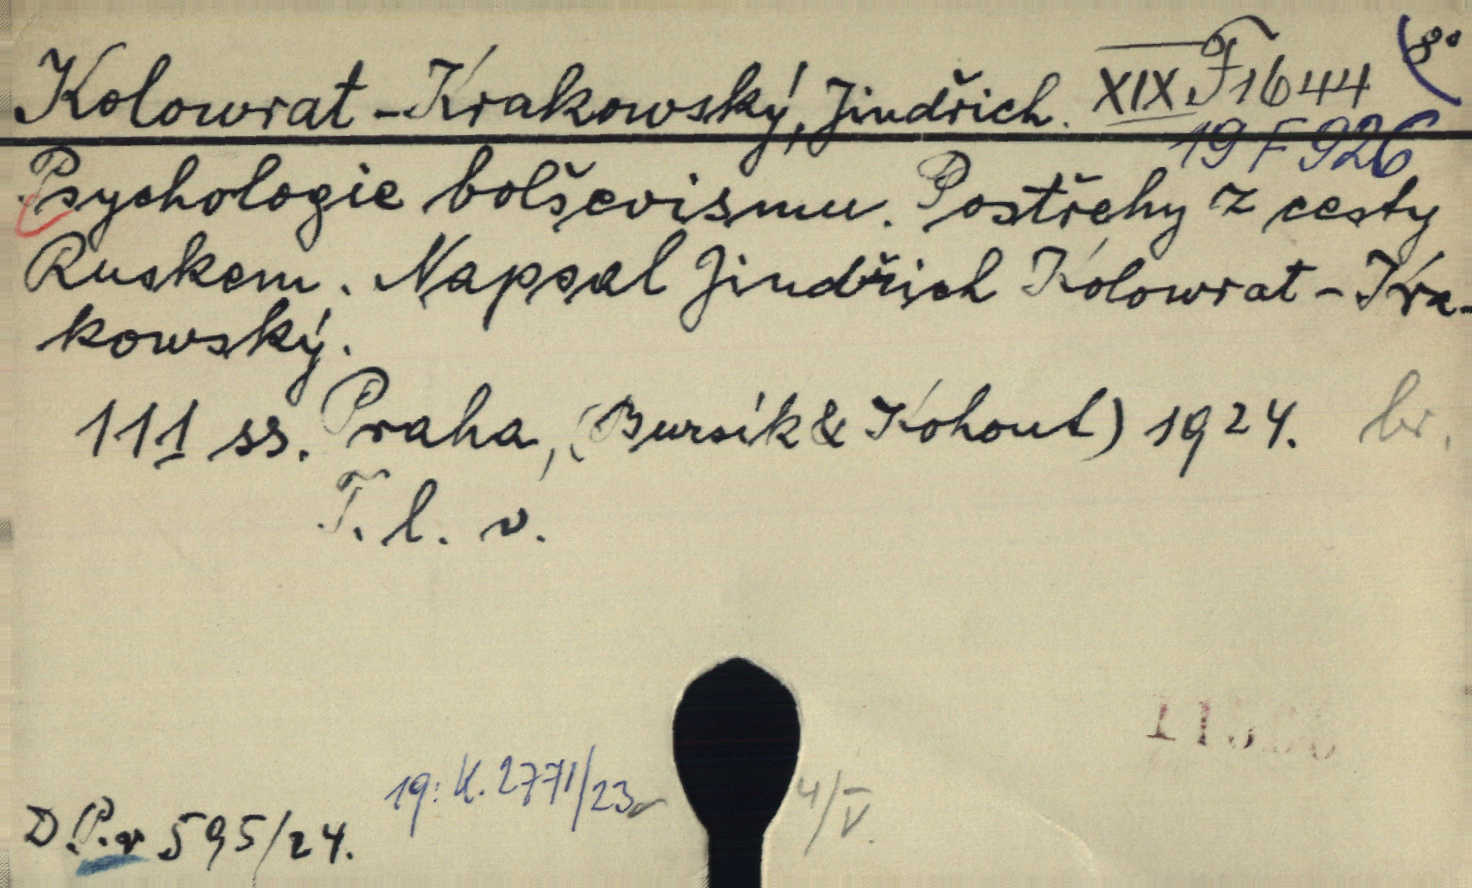 Kolowrat-Krakowský, Jindřich. XIX F 1644 8°
19 F 926
Psychologie bolševismu. Postřehy z cesty
Ruskem. Napsal Jindřich Kolowrat-Kra-
kowský.
111 ss. Praha, (Bursík & Kohout) 1924. br.
T. l. v.
19: K. 2771/23
4/V.
D. P. v 595/24.